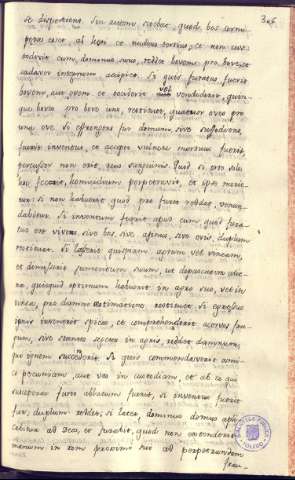 346
se disposicione. Sin autem sciebat, quod bos cornu-
peta esset ab heri et nudius tertius, et non cus-
todivit eum dominus suus, reddet bovem pro bove, et
cadaver integrum accipiet. Si quis furatus fuerit
bovem, aut ovem et occiderit vel vendiderit, quin-
que boves pro bove uno restituet, quatuor oves pro
una ove. Si effringens fur domum, sive suffodiens,
fuerit inventus, et accepto vulnere mortuus fuerit,
percussor non erit reus sanguinis. Quod si orto sole
hoc fecerit, homicidium perpetravit, et ipse morie-
tur. si non habuerit quod pro furto reddat, venun-
dabitur. Si inventum fuerit apud eum, quod fura-
tus est vivens, sive bos, sive asinus, sive ovis, duplum
restituet. Si laeserit quispiam agrum vel vineam,
et dimisserit jumentum suum, ut depascatur alie-
na, quidquid optimum habuerit in agro suo, vel in
vinea, pro damni estimatione restituet. Si egressus
ignis invenerit spicas, et comprehenderit acervos fru-
gum, sive stantes segetes in agris, reddet damnum,
qui ignem succenderit. Si quis commendaverit ami-
co pecuniam, aut vas in custodiam et ab eo qui
susceperat furto ablatum fuerit, si invenitur fuerit
fur, duplum reddet, si latet, dominus domus apli-
cabitur ad Deos, et jurabit, quod non extenderit
manum in rem proximi sui ad perpetrandam
frau-